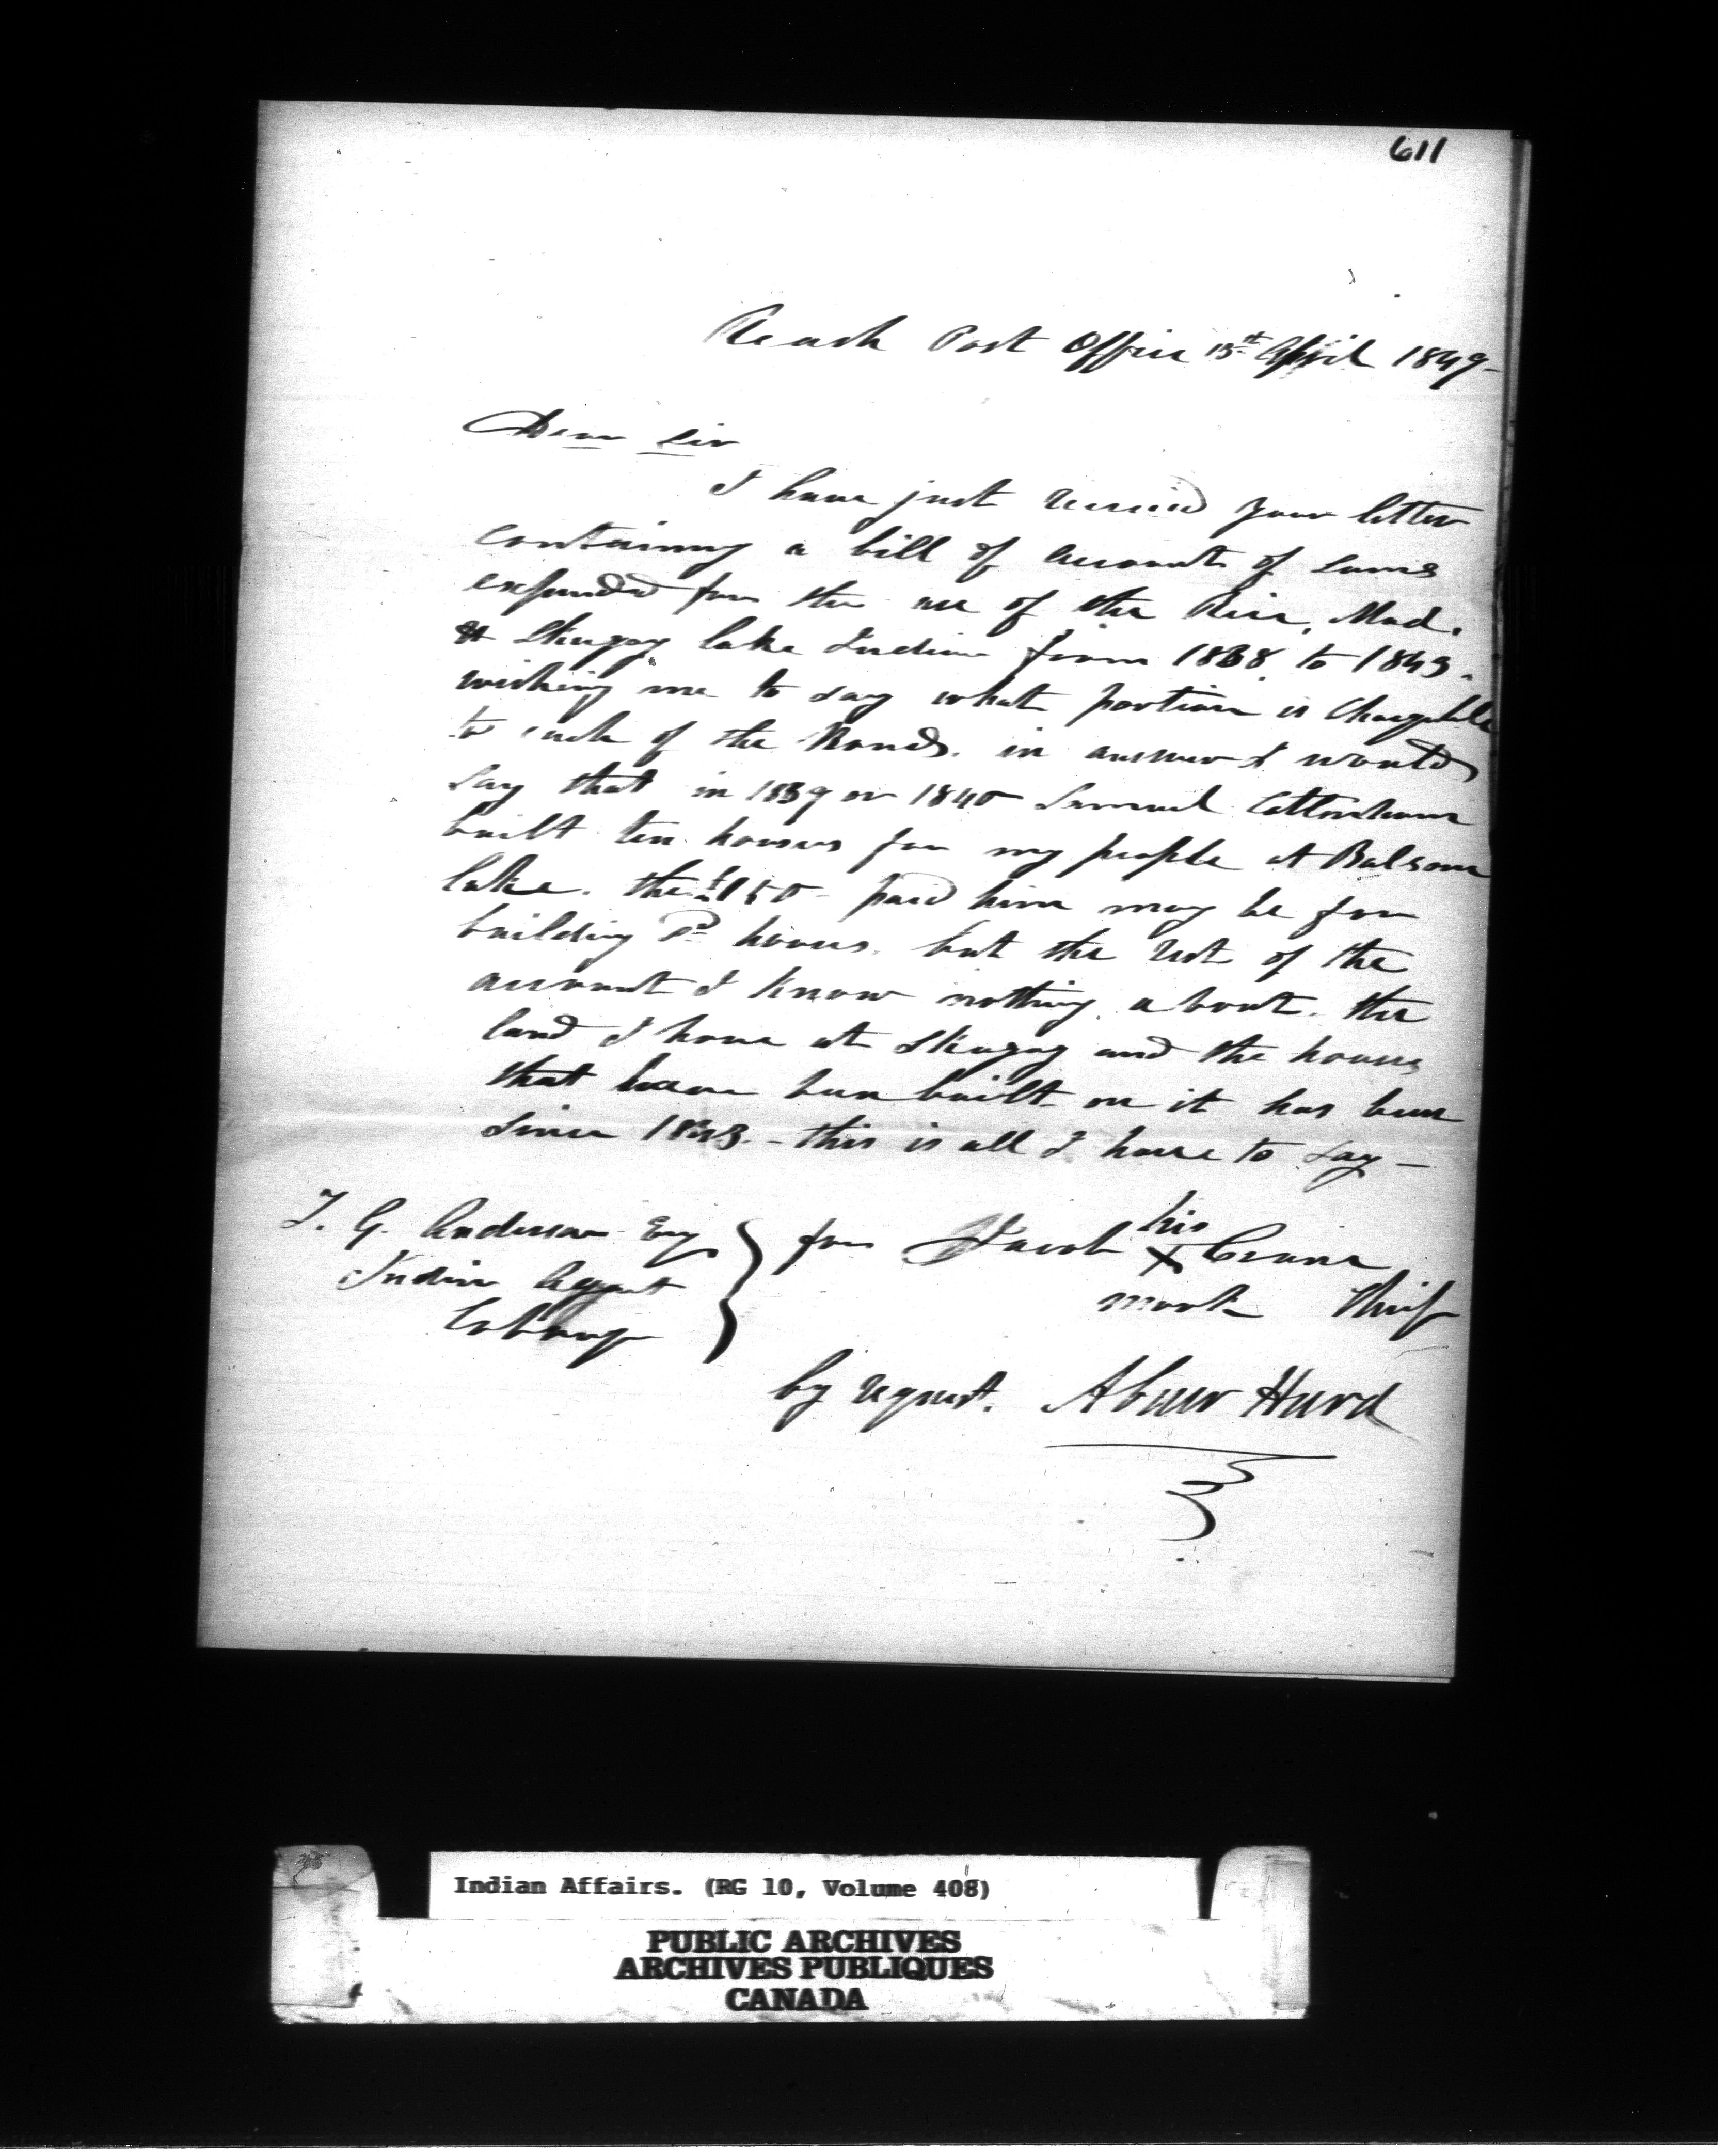 611
Reach Post Office 13th April 1849-
Dear Sir
I have just received your letter
containing a bill of account of sums
expended for the use of the Rice, Mud,
& Skugog lake Indians from 1838 to 1843.
wishing me to say what portion is Chargable
to each of the Bands. in answer I would
say that in 1839 or 1840 Samuel Cottenham
built ten houses for my people at Balsom
lake. the £150- paid him may be for
building Sd houses. but the rest of the
account I know nothing about. the
land I have at Skugog and the houses
that have been built on it has been
since 1843. - this is all I have to say -
T. G. Anderson Esq } for Jacob his X Crane
Indian Agent mark Chief
Cobourg
by request. Abner Hurd
Indian Affairs. (RG 10, Volume 408)
PUBLIC ARCHIVES
ARCHIVES PUBLIQUES
CANADA